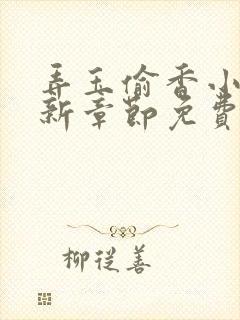 弄玉偷香小
新章節免費
柳從善